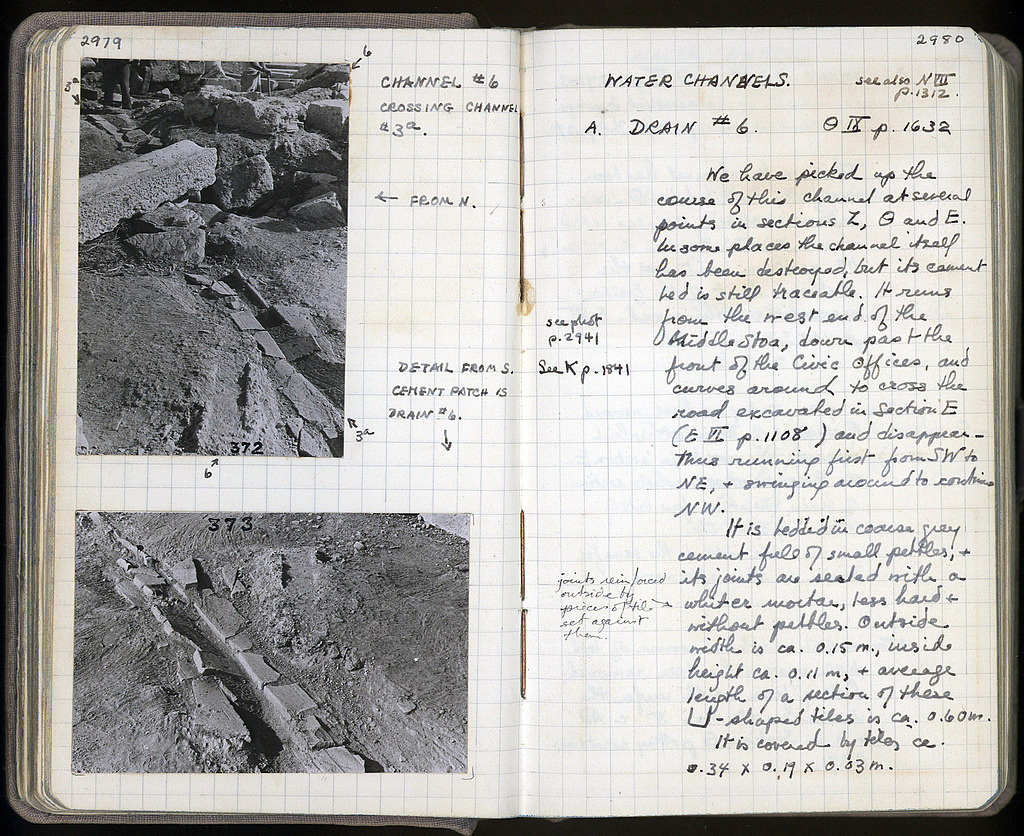 2979
6
3a
CHANNEL #6
CROSSING CHANNEL
#3a.
← FROM N.
DETAIL FROM S.
CEMENT PATCH IS
DRAIN #6.
372
3a
6
373
2980
WATER CHANNELS.
see also N VII
p. 1312.
A. DRAIN #6. Θ IX p. 1632
We have picked up the
course of this channel at several
points in sections Z, Θ and E.
In some places the channel itself
has been destroyed, but its cement
bed is still traceable. It runs
from the west end of the
Middle Stoa, down past the
front of the Civic Offices, and
curves around to cross the
road excavated in Section E
(E VI p. 1108) and disappear –
thus running first from SW to
NE, + swinging around to continue
NW.
see phot
p. 2941
See K p. 1841
It is bedded in coarse grey
cement full of small pebbles, +
its joints are sealed with a
whiter mortar, less hard +
without pebbles. Outside
width is ca. 0.15 m., inside
height ca. 0.11 m, + average
length of a section of these
U-shaped tiles is ca. 0.60m.
It is covered by tiles ca.
0.34 x 0.19 x 0.03 m.
joints reinforced
outside by
pieces of tile
set against
them.